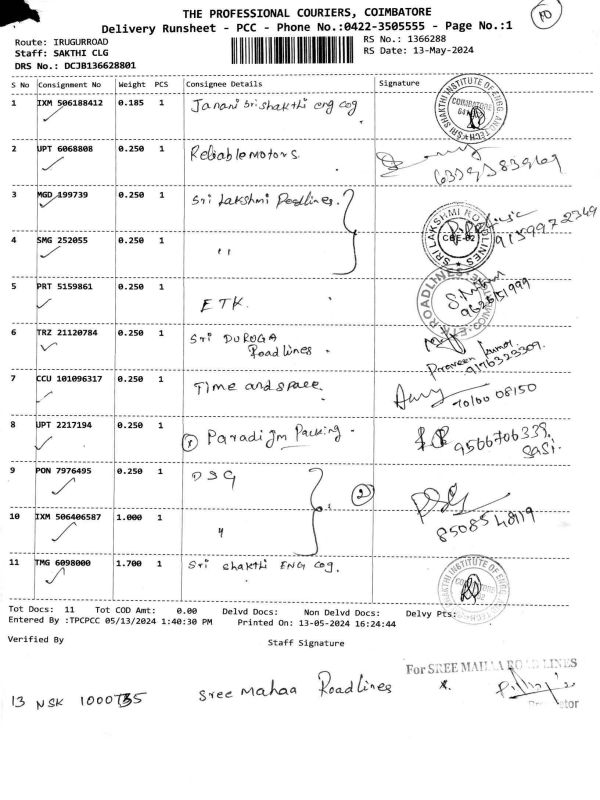 THE PROFESSIONAL COURIERS, COIMBATORE
Delivery Runsheet - PCC - Phone No.:0422-3505555 - Page No.:1
Route: IRUGURROAD
RS No.: 1366288
Staff: SAKTHI CLG
RS Date: 13-May-2024
DRS No.: DCJB136628801
S No Consignment No Weight PCS Consignee Details Signature
1 IXM 506188412 0.185 1 Janani Sri shakthi eng cog
2 UPT 6068808 0.250 1 Reliable motors.
3 MGD 199739 0.250 1 Sri Lakshmi Roadlines.
4 SMG 252055 0.250 1 "
SRI LAKSHMI ROADLINES
CBE-02
9159972349
5 PRT 5159861 0.250 1 ETK.
ETK ROADLINES
6 TRZ 21120784 0.250 1 Sri DURGA
Roadlines.
Praveen Kumar
9176323309.
7 CCU 101096317 0.250 1 Time and space.
70100 08150
8 UPT 2217194 0.250 1 Paradigm Packing.
9566706339
Sasi.
9 PON 7976495 0.250 1 DSG
2
10 IXM 506406587 1.000 1 "
11 TMG 6098000 1.700 1 Sri shakthi ENG cog.
Tot Docs: 11 Tot COD Amt: 0.00 Delvd Docs: Non Delvd Docs: Delvy Pts:
Entered By :TPCPCC 05/13/2024 1:40:30 PM Printed On: 13-05-2024 16:24:44
Verified By
Staff Signature
For SREE MAHAA ROAD LINES
13 NSK Sree Mahaa Roadlines